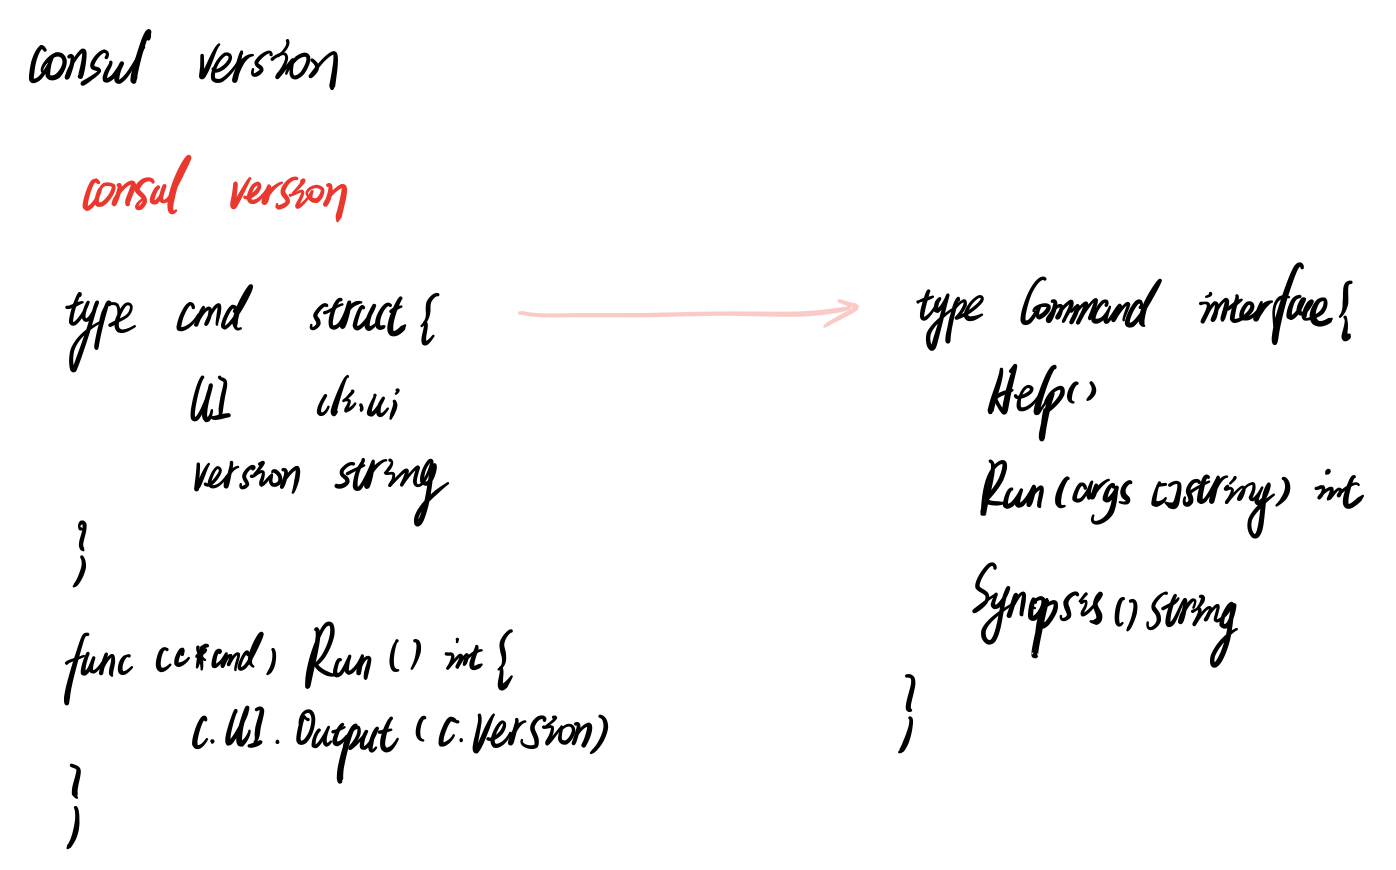 consul version
consul version
type cmd struct {
UI cli.ui
version string
}
func (c *cmd) Run () int {
c.UI.Output (c.version)
}
type Command interface {
Help()
Run (args []string) int
Synopsis () string
}